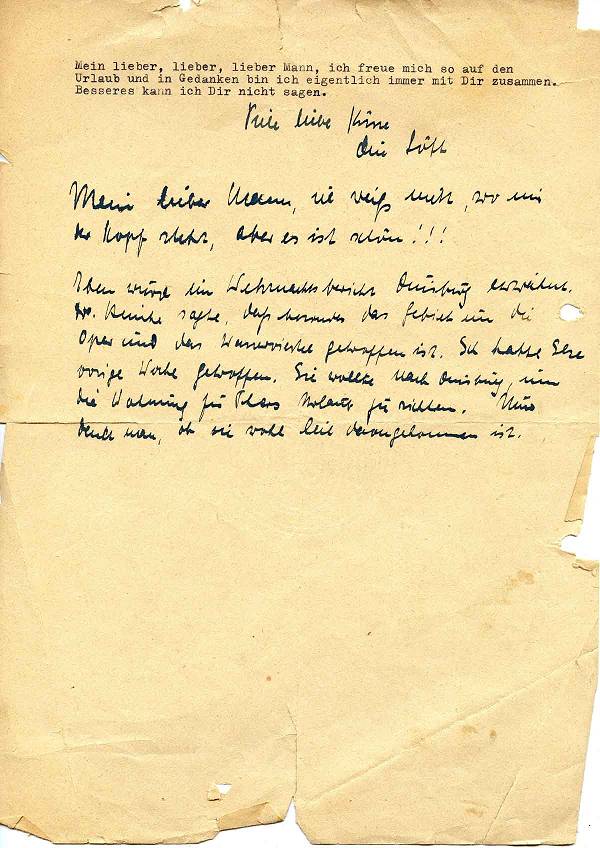 Mein lieber, lieber, lieber Mann, ich freue mich so auf den
Urlaub und in Gedanken bin ich eigentlich immer mit Dir zusammen.
Besseres kann ich Dir nicht sagen.
Viele liebe Küsse
Mein lieber Mann, ich weiß nicht, wo mir
der Kopf steht, aber es ist schön!!!
Eben wurde im Wehrmachtsbericht Duisburg erwähnt.
Dr. sagte, daß besonders das Gebiet um die
Oper und das getroffen ist. Ich hatte Else
vorige Woche getroffen. Sie wollte nach Duisburg, um
die Wohnung für Urlaub zu richten. Nun
denkt man, ob sie wohl heil davongekommen ist.